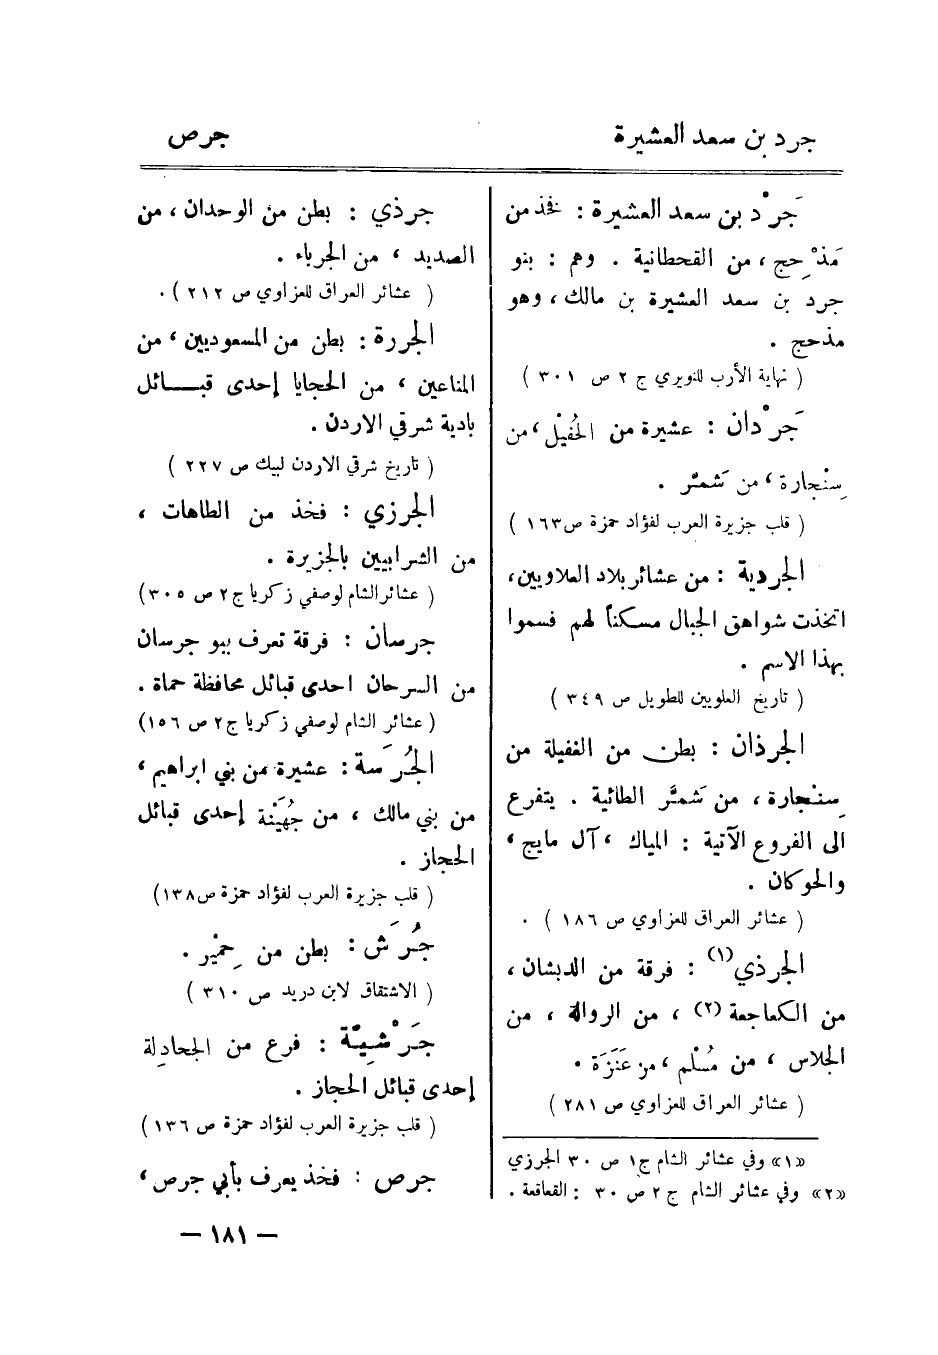 جرد بن سعد العشيرة
جرص
جَرْد بن سعد العشيرة : فخذ من
مَذْحِج ، من القحطانية . وهم : بنو
جرد بن سعد العشيرة بن مالك ، وهو
مذحج .
( نهاية الأرب للنويري ج ٢ ص ٣٠١ )
جَرْدان : عشيرة من الخُفيْل ، من
سِنْجارة ، من شَمَّر .
( قلب جزيرة العرب لفؤاد حمزة ص ١٦٣ )
الجردية : من عشائر بلاد العلاويين ،
اتخذت شواهق الجبال مسكناً لهم فسموا
بهذا الاسم .
( تاريخ العلويين للطويل ص ٣٤٩ )
الجرذان : بطن من الغفيلة من
سِنْجارة ، من شَمَّر الطائية . يتفرع
الى الفروع الآتية : المياك ، آل مايج ،
والحوكان .
( عشائر العراق للعزاوي ص ١٨٦ ) .
الجرذي (١) : فرقة من الدبشان ،
من الكعاجعة (٢) ، من الروالة ، من
الجلاس ، من مُسْلم ، من عَنَزَة .
( عشائر العراق للعزاوي ص ٢٨١ )
«١» وفي عشائر الشام ج١ ص ٣٠ الجرزي
«٢» وفي عشائر الشام ج ٢ ص ٣٠ : القعاقعة .
جرذي : بطن من الوحدان ، من
الصديد ، من الجرباء .
( عشائر العراق للعزاوي ص ٢١٢ ) .
الجررة : بطن من المسعوديين ، من
المناعين ، من الحجايا إحدى قبـــائل
بادية شرقي الاردن .
( تاريخ شرقي الاردن لبيك ص ٢٢٧ )
الجرزي : فخذ من الطاهات ،
من الشرابيين بالجزيرة .
( عشائر الشام لوصفي زكريا ج ٢ ص ٣٠٥ )
جرسان : فرقة تعرف ببو جرسان
من السرحان احدى قبائل محافظة حماة .
( عشائر الشام لوصفي زكريا ج ٢ ص ١٥٦ )
الجُرَسة : عشيرة من بني ابراهيم ،
من بني مالك ، من جُهَيْنة إحدى قبائل
الحجاز .
( قلب جزيرة العرب لفؤاد حمزة ص ١٣٨ )
جُرَش : بطن من حِمْير .
( الاشتقاق لابن دريد ص ٣١٠ )
جَرْشيَّة : فرع من الجحادِلة
إحدى قبائل الحجاز .
( قلب جزيرة العرب لفؤاد حمزة ص ١٣٦ )
جرص : فخذ يعرف بأبي جرص ،
— ١٨١ —